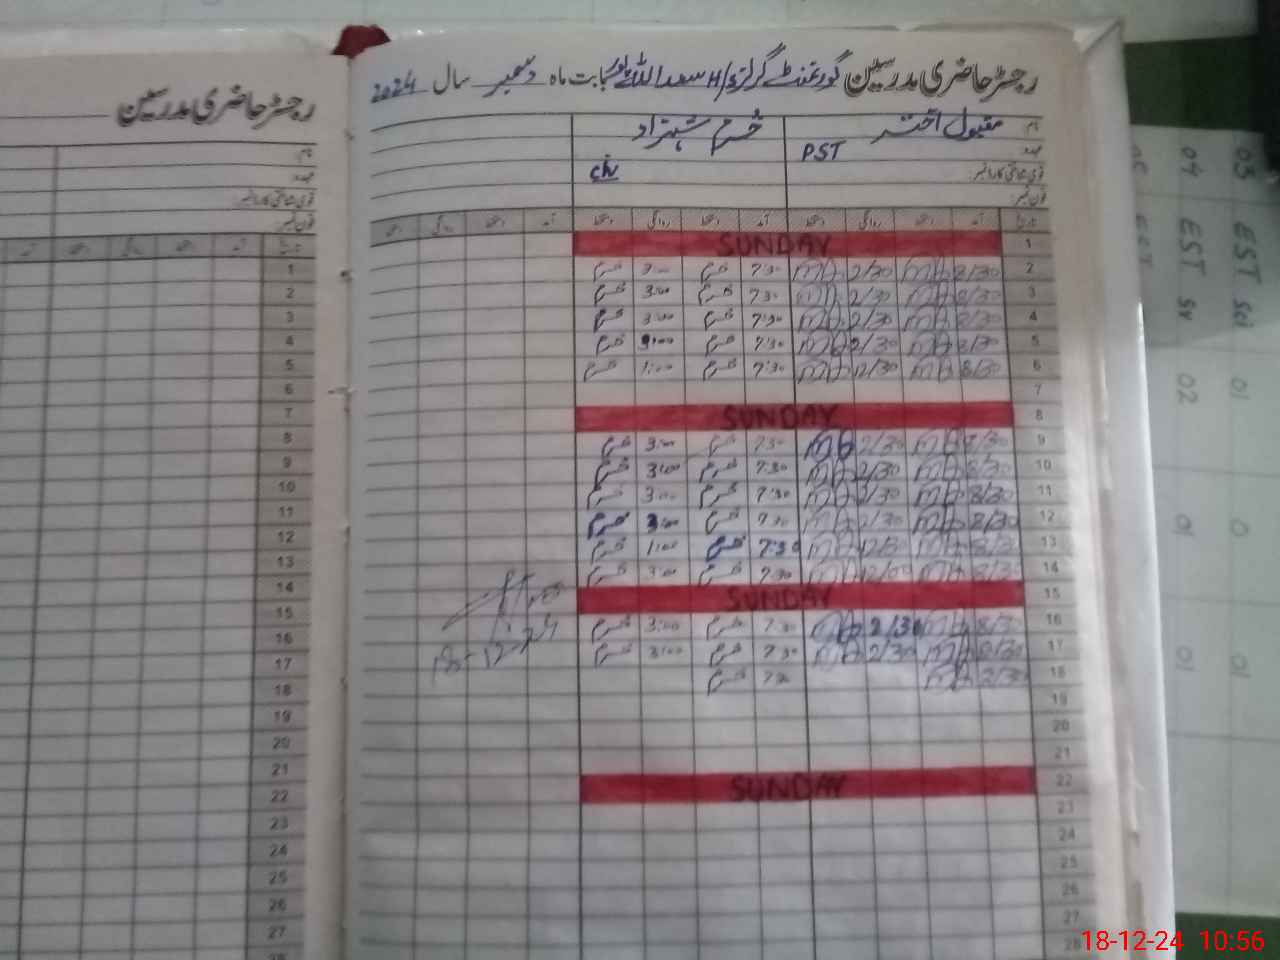 رجسٹر حاضری مدرسین گورنمنٹ گرلز H/S سعد اللہ پور بابت ماہ دسمبر سال 2024
نام مقبول اختر خرم شہزاد
عہدہ PST
قومی شناختی کارڈ نمبر:
فون نمبر:
تاریخ آمد دستخط روانگی دستخط آمد دستخط روانگی دستخط آمد دستخط روانگی دستخط
1 SUNDAY
2 8/30 2/30 7:30 3:00 خرم
3 8/30 2/30 7:30 خرم 3:00 خرم
4 8/30 2/30 7:30 خرم 3:00 خرم
5 8/30 2/30 7:30 خرم 3:00 خرم
6 8/30 12/30 7:30 خرم 1:00 خرم
7
8 SUNDAY
9 8/30 2/30 7:30 خرم 3:00 خرم
10 8/30 2/30 7:30 خرم 3:00 خرم
11 8/30 2/30 7:30 خرم 3:00 خرم
12 8/30 2/30 7:30 خرم 3:00 خرم
13 8/30 12/30 7:30 خرم 1:00 خرم
14 8/30 12/00 7:30 خرم 3:00 خرم
15 SUNDAY
16 8/30 2/30 7:30 خرم 3:00 خرم
17 8/30 2/30 7:30 خرم 3:00 خرم
18 8/30 7:30 خرم
18-12-24
19
20
21
22 SUNDAY
23
24
25
26
27
28
رجسٹر حاضری مدرسین
نام
عہدہ
قومی شناختی کارڈ نمبر:
فون نمبر:
تاریخ آمد دستخط روانگی دستخط آمد
1
2
3
4
5
6
7
8
9
10
11
12
13
14
15
16
17
18
19
20
21
22
23
24
25
26
27
28
03 EST Sci 01 0 01
04 EST SV 02 01 01
05 EST
18-12-24 10:56